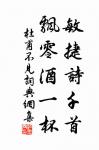 敏捷詩千首
飄零酒一杯
杜甫不見詞典網集